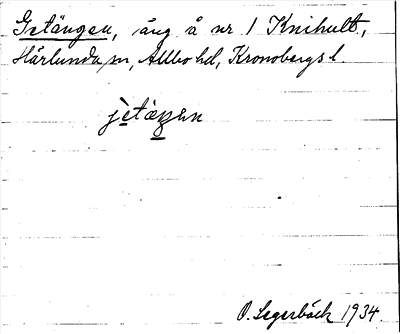 Getängen, äng å nr 1 Knihult,
Härlunda sn, Allbo hd, Kronobergs l.
O. Legerbäck 1934.